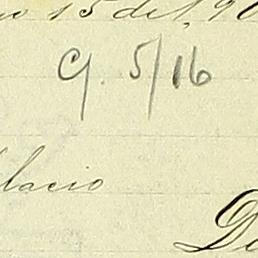 15 del, 90
G. 5/16
lacio
D